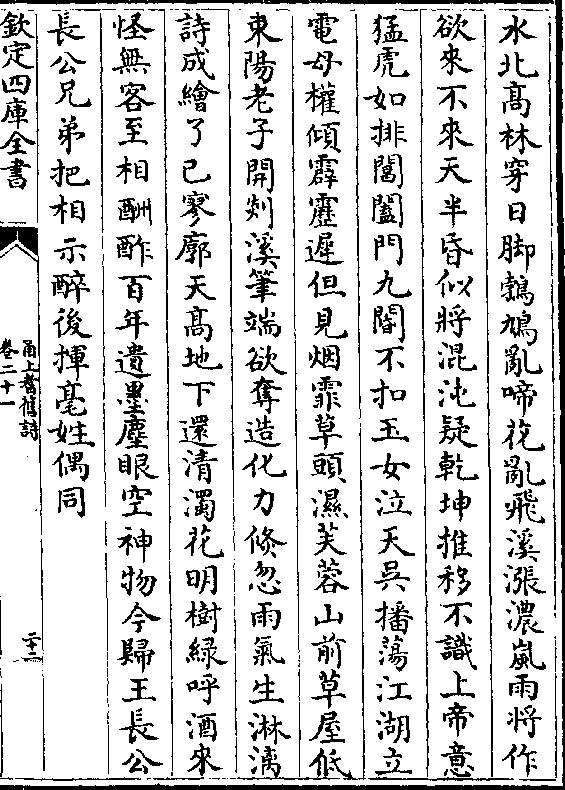 水北髙林穿日脚鵓鳩亂啼花亂飛溪漲濃嵐雨將作
欲來不來天半昏似將混沌疑乾坤推移不識上帝意
猛虎如排閶闔門九閽不扣玉女泣天吳播蕩江湖立
電母權傾霹靂遲但見烟霏草頭濕芙蓉山前草屋低
東陽老子開剡溪筆端欲奪造化力倐忽雨氣生淋漓
詩成繪了已寥廓天髙地下還清濁花明樹綠呼酒來
怪無客至相酬酢百年遺墨塵眼空神物今歸王長公
長公兄弟把相示醉後揮毫姓偶同
欽定四庫全書
甬上耆舊詩
卷二十一
二十二